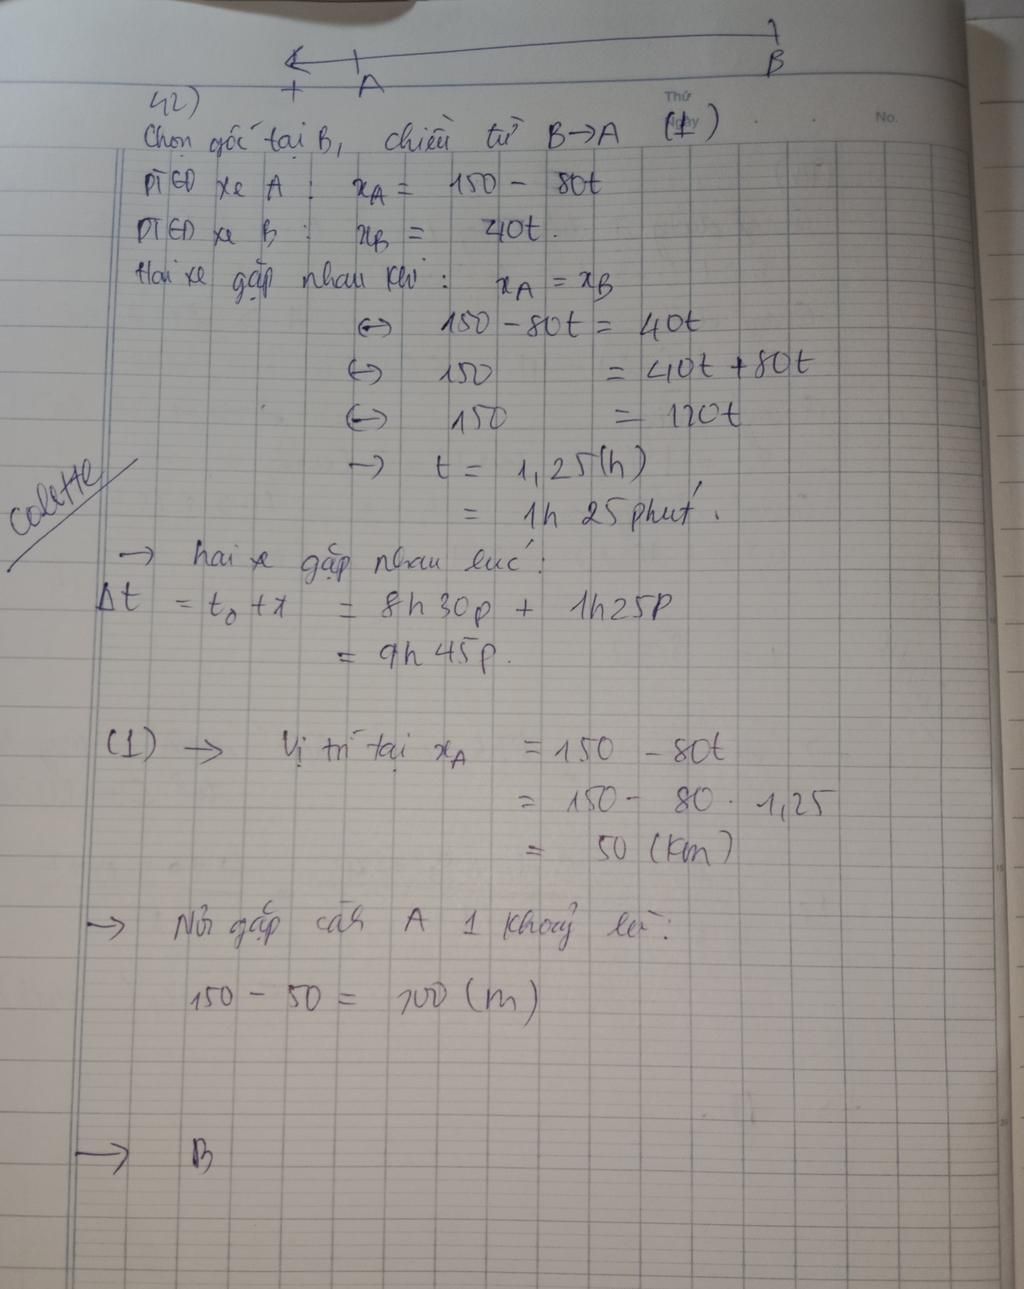 A B
+
42)
Thứ
Ngày No.
Chọn gốc tại B, chiều từ B→A (+)
PTCĐ xe A : xA = 150 - 80t
PTCĐ xe B : xB = 40t.
Hai xe gặp nhau khi : xA = xB
↔ 150 - 80t = 40t
↔ 150 = 40t + 80t
↔ 150 = 120t
→ t = 1,25(h)
= 1h 25 phút.
Colette
→ hai xe gặp nhau lúc :
Δt = t0 + t = 8h 30p + 1h25p
= 9h 45p.
(1) → Vị trí tại xA = 150 - 80t
= 150 - 80 . 1,25
= 50 (km)
→ Nơi gặp cách A 1 khoảng là :
150 - 50 = 100 (m)
→ B